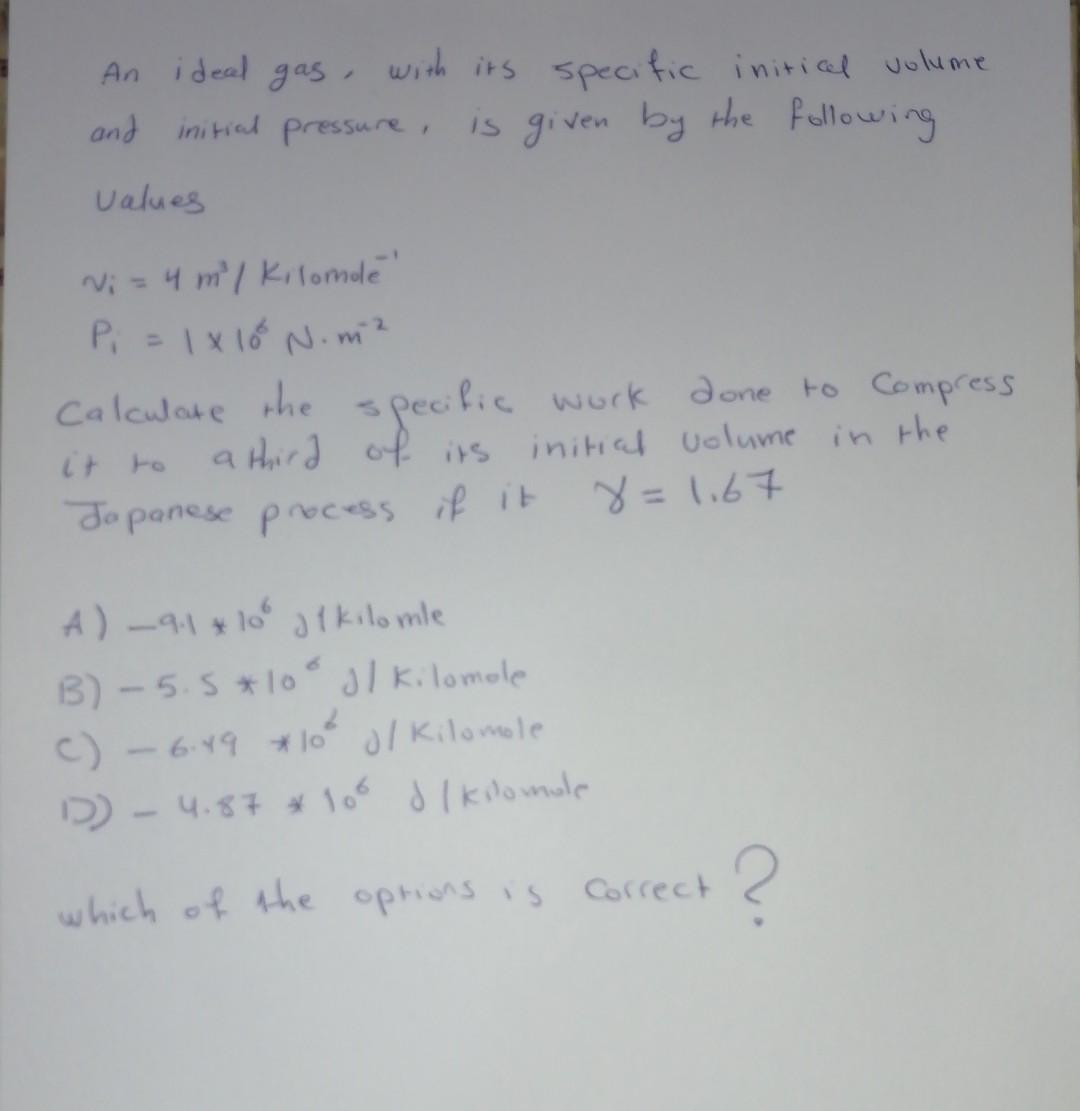 An ideal gas, with its specific initial volume
and initial pressure, is given by the following
values
Vi = 4 m³/ Kilomole⁻¹
Pi = 1 x 10⁶ N.m⁻²
Calculate the specific work done to Compress
it to a third of its initial volume in the
Japanese process if it γ = 1.67
A) -9.1 * 10⁶ J/kilomle
B) - 5.5 * 10⁶ J/ Kilomole
C) - 6.49 * 10⁶ J/ Kilomole
D) - 4.87 * 10⁶ J/kilomole
which of the options is correct?